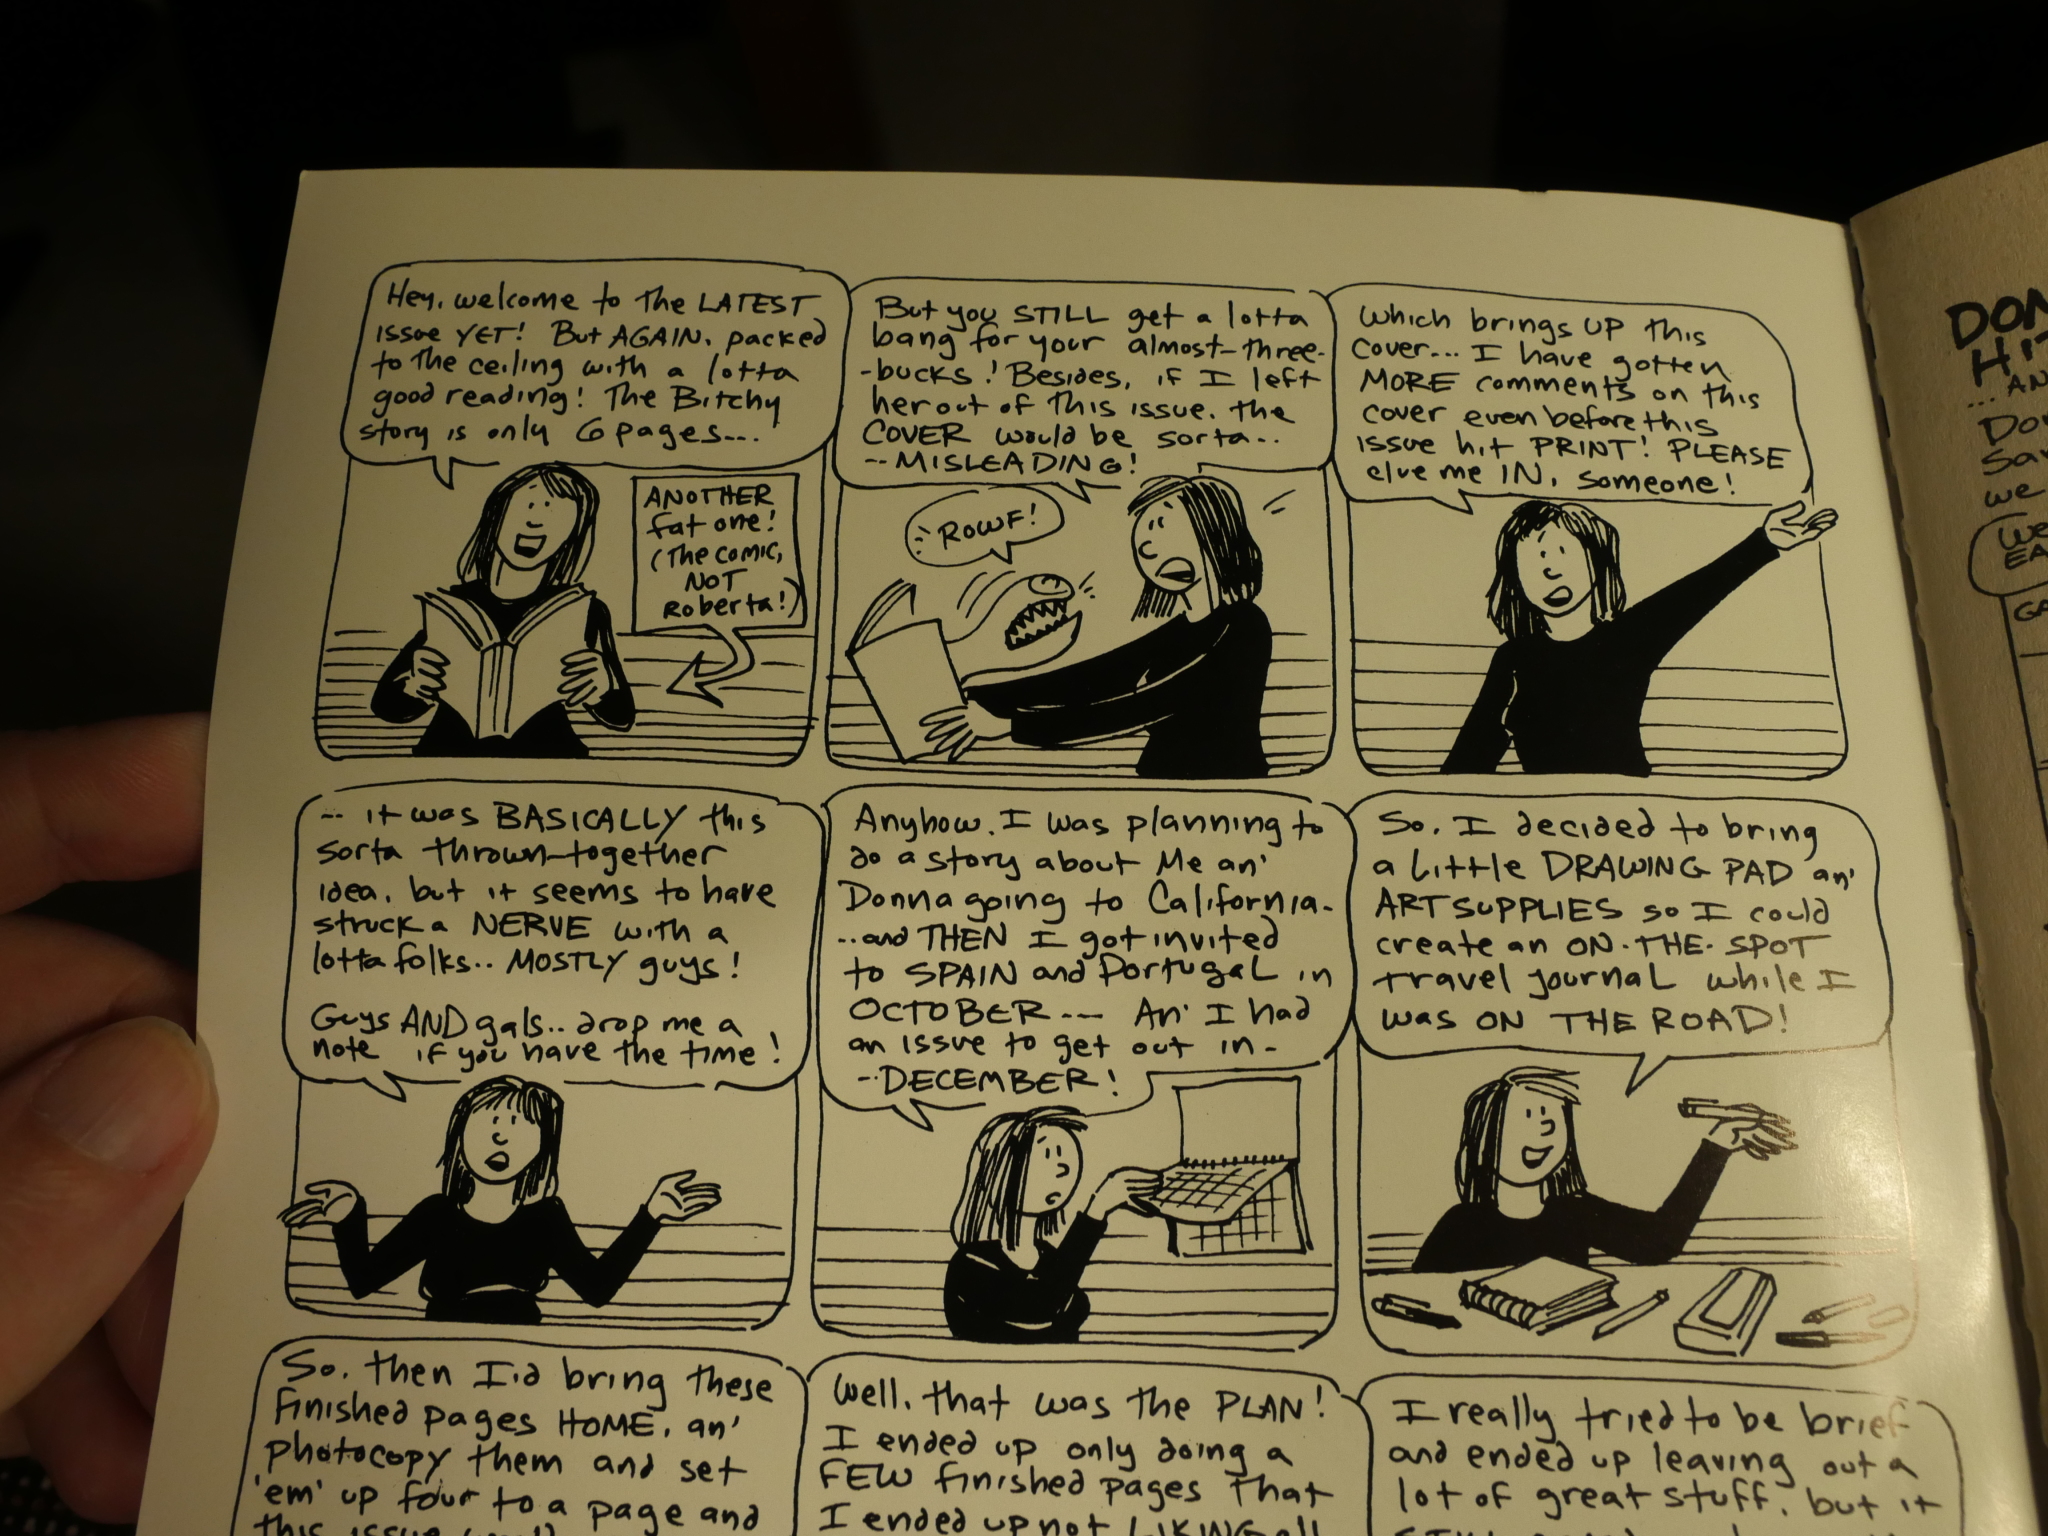 Hey, welcome to the LATEST
issue YET! But AGAIN, packed
to the ceiling with a lotta
good reading! The Bitchy
story is only 6 pages...
ANOTHER
fat one!
(The comic,
NOT
Roberta!)
But you STILL get a lotta
bang for your almost-three-
-bucks! Besides, if I left
her out of this issue, the
COVER would be sorta--
--MISLEADING!
ROWF!
Which brings up this
cover... I have gotten
MORE comments on this
cover even before this
issue hit PRINT! PLEASE
clue me IN, someone!
-- it was BASICALLY this
sorta thrown-together
idea, but it seems to have
struck a NERVE with a
lotta folks.. MOSTLY guys!
Guys AND gals.. drop me a
note if you have the time!
Anyhow, I was planning to
do a story about Me an'
Donna going to California-
--and THEN I got invited
to SPAIN and Portugal in
OCTOBER --- An' I had
an issue to get out in-
--DECEMBER!
So, I decided to bring
a little DRAWING PAD an'
ART SUPPLIES so I could
create an ON-THE-SPOT
travel journal while I
was ON THE ROAD!
So, then I'd bring these
finished pages HOME, an'
photocopy them and set
'em' up four to a page and
this issue
Well, that was the PLAN!
I ended up only doing a
FEW finished pages that
I ended up not LIKING all
I really tried to be brief
and ended up leaving out a
lot of great stuff, but it
... AN
we
EA
GA